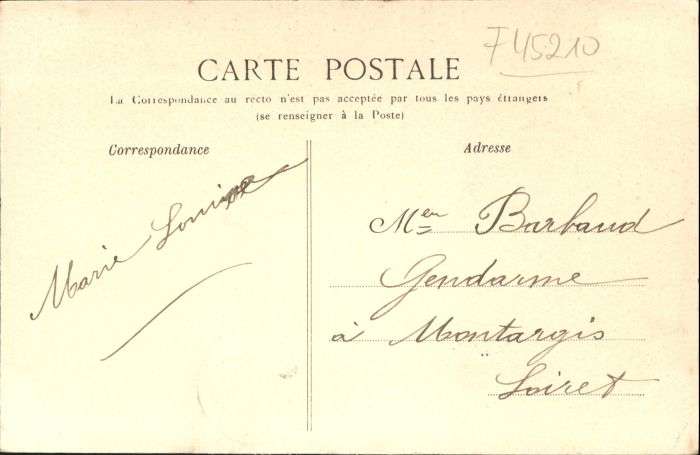 F 45210
CARTE POSTALE
La Correspondance au recto n'est pas acceptée par tous les pays étrangers
(se renseigner à la Poste)
Correspondance
Adresse
Marie Louise
Mer Barbaud
Gendarme
à Montargis
Loiret